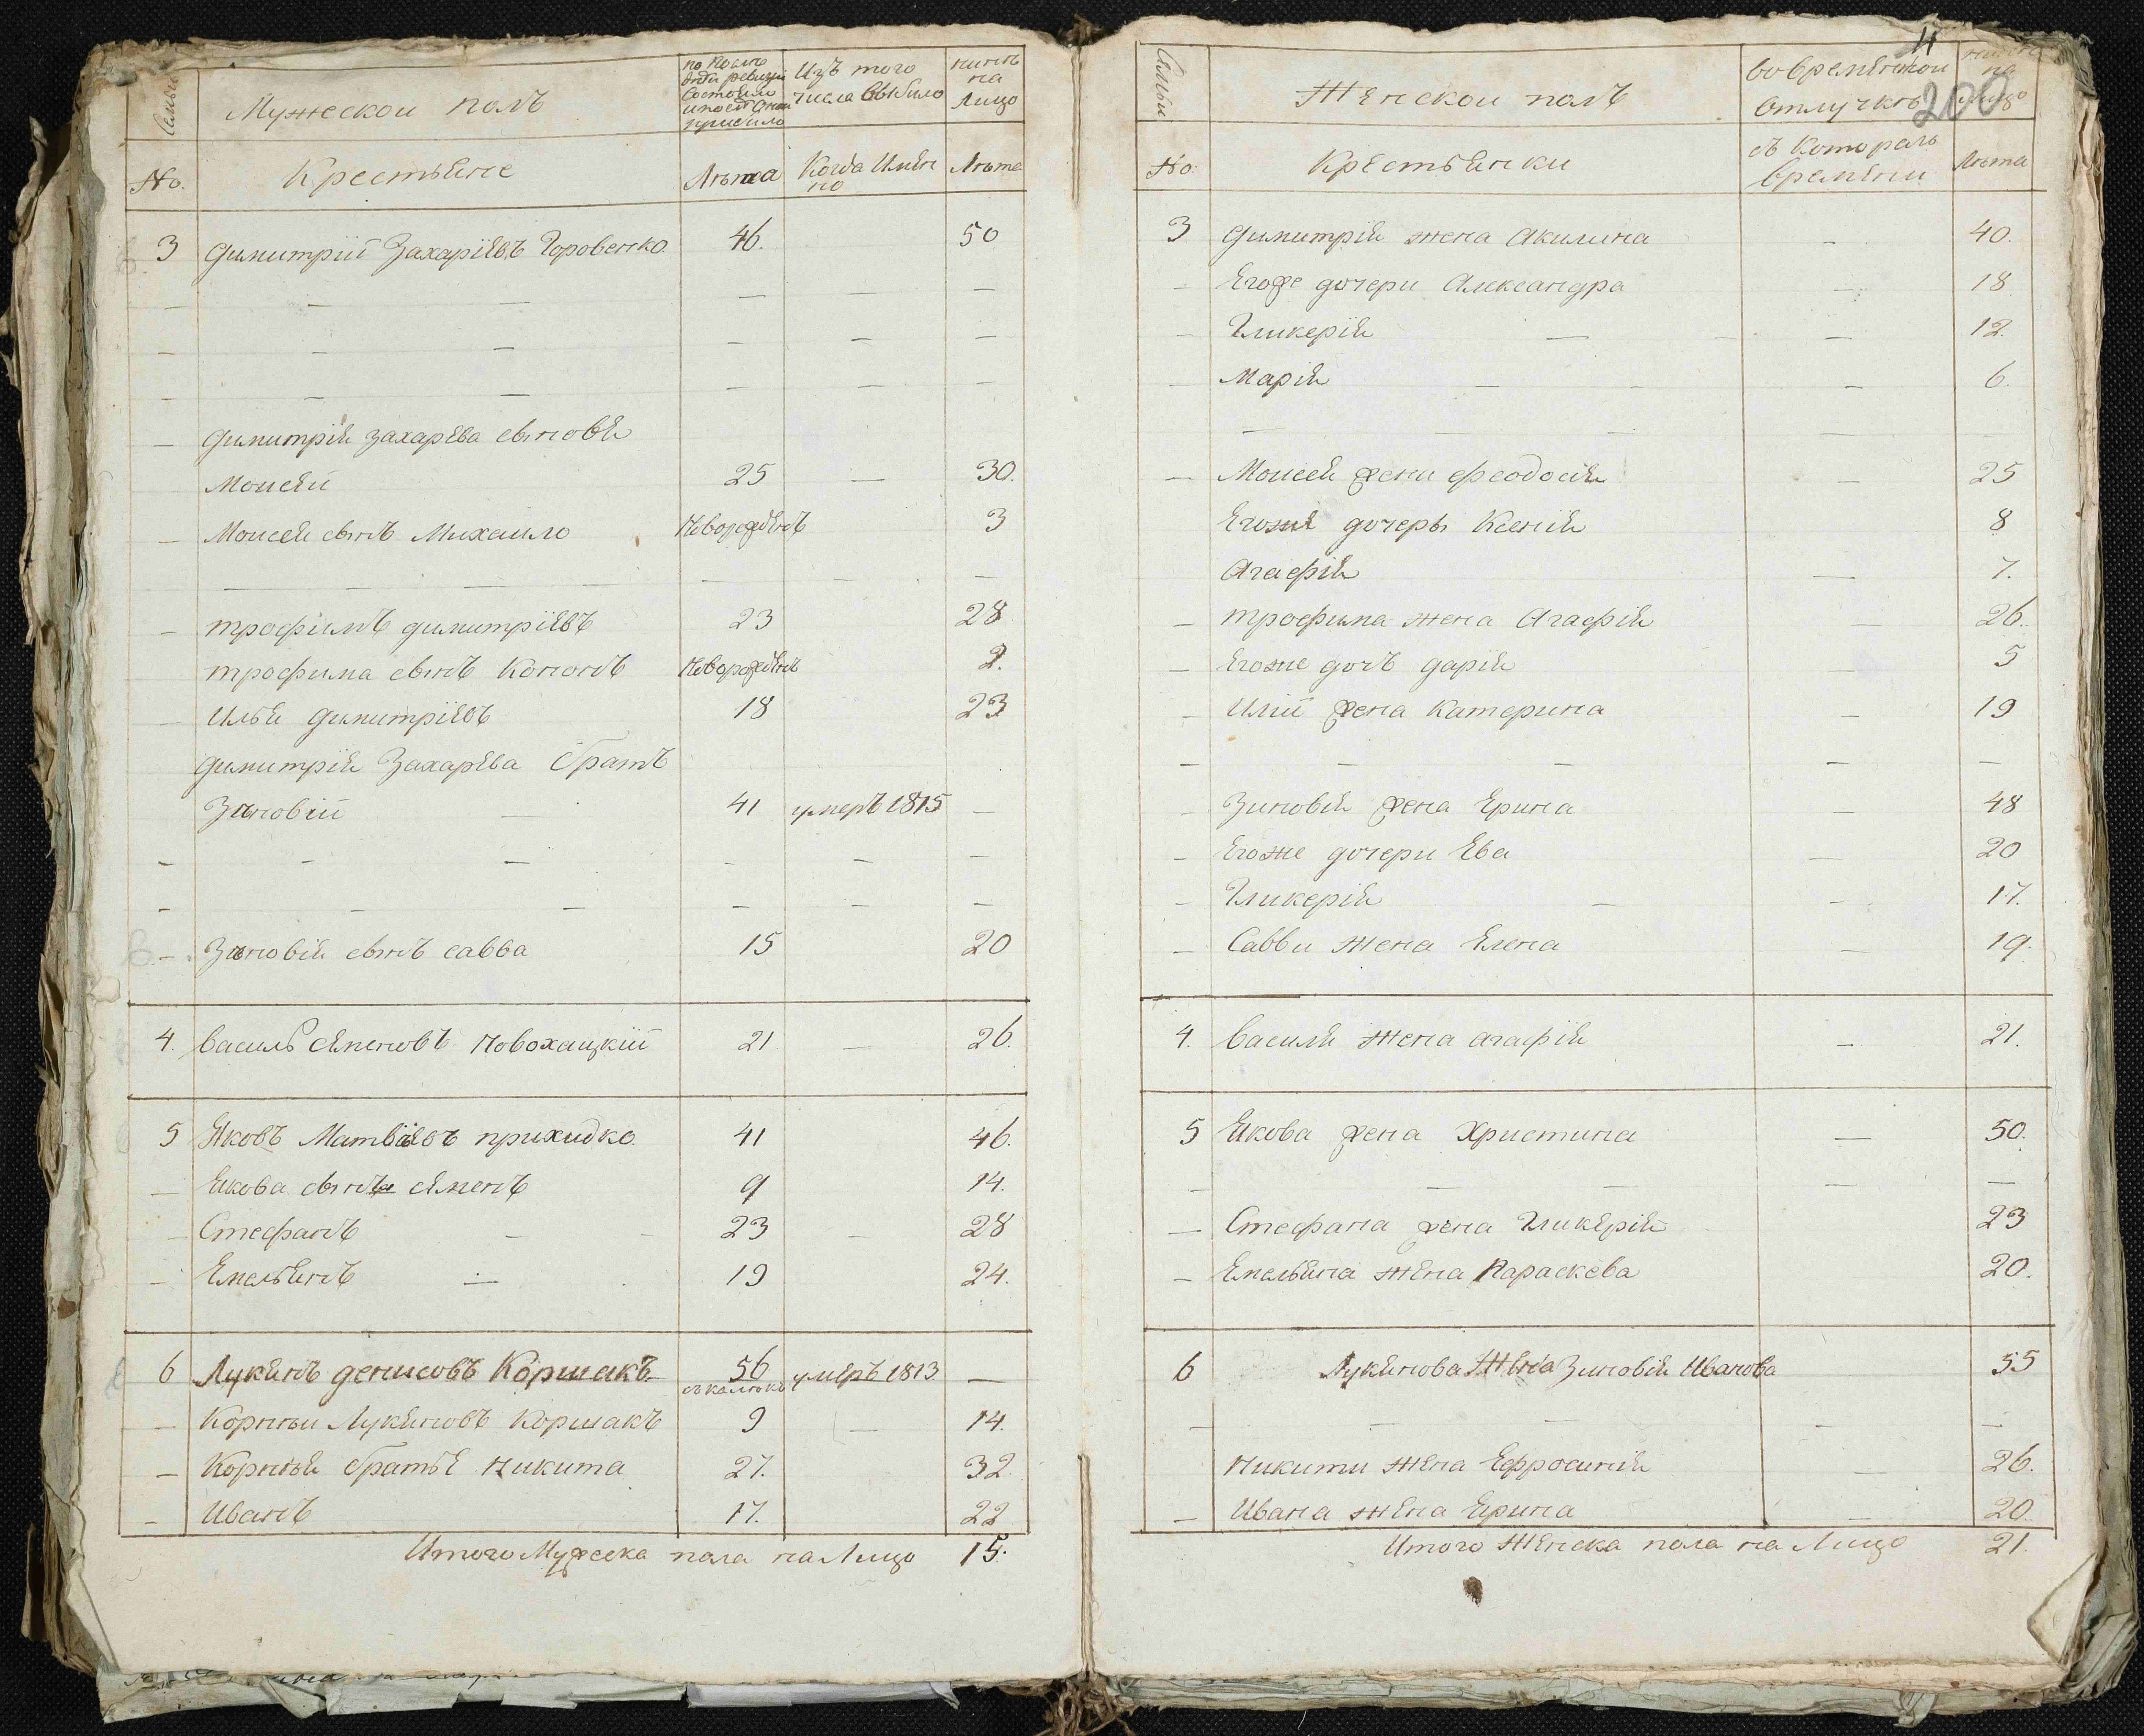 Семьи
Мужескои полъ
по последней ревизіи состояло и после оной прибыло
Изъ того числа выбыло
нинѣ на Лицо
No. Крестьяне Лѣта Когда Именно Лѣта
3 Димитрій Захаріевъ Горовенко 46. 50
Димитрія Захарева сыновя
Моисей 25 — 30.
— Моисея сынъ Михаило Новорожденъ 3
— трофимъ димитріевъ 23 28
трофима сынъ Кононъ Новорожденъ 2.
— Илья Димитріевъ 18 23
Димитрія Захарева братъ
Зиновій — 41 умеръ 1815 —
— Зиновія сынъ савва 15 20
4. василь семеновъ Новохацкій 21 — 26.
5 Яковъ Матвѣевъ прихидко 41 46.
— Якова сынъ семенъ 9 14.
— Стефанъ — 23 — 28
— Емельянъ — 19 24.
6 Лукянъ денисовъ Коршакъ 56 умеръ 1813 —
— Корнѣи Лукяновъ Коршакъ 9 — 14.
— Корнѣя братья никита 27. 32.
— Иванъ 17. 22
Итого Мужеска пола на Лицо 15.
11
206
Семьи
Женскои полъ
во временнои отлучкѣ
нинѣ на лицо
No. Крестьянки съ Котораго времени Лѣта
3 Димитрія жена Акилина — 40.
— Егоже дочери Александра — 18
— Гликерія — 12.
— Марія — 6.
— Моисея жена феодосія — 25
Егоже дочеры Ксенія 8
Агафія — 7.
— трофима жена Агафія — 26.
— Егоже дочъ дарія 5
— Иліи жена Катерина — 19
— Зиновія жена Ерина — 48
— Егоже дочери Ева — 20
— Гликерія — 17.
— Саввы жена Елена — 19.
4. Василя жена агафія — 21.
5 Якова жена Христина — 50.
— Стефана жена Гликерія 23
— Емельяна жена Параскева 20.
6 Лукянова Жена Зиновія Иванова 55
Никиты жена Ефросинія — 26.
— Ивана жена Ерина — 20.
Итого Женска пола на Лицо 21.